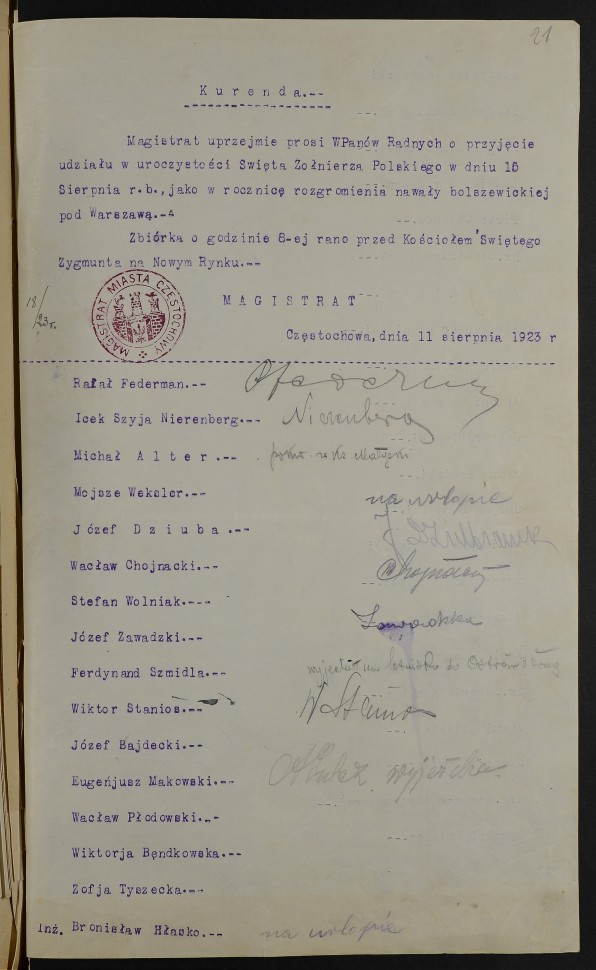 21
Kurenda.--
Magistrat uprzejmie prosi WPanów Radnych o przyjęcie
udziału w uroczystości Swięta Zołnierza Polskiego w dniu 15
Sierpnia r.b., jako w rocznicę rozgromienia nawały bolszewickiej
pod Warszawą.--
Zbiórka o godzinie 8-ej rano przed Kościołem Swiętego
Zygmunta na Nowym Rynku.--
18/
23 r.
MAGISTRAT MIASTA CZĘSTOCHOWY
MAGISTRAT
Częstochowa, dnia 11 sierpnia 1923 r
Rafał Federman.--
Icek Szyja Nierenberg.-- Nierenberg
Michał Alter.--
Mojsze Weksler.-- na urlopie
Józef Dziuba.--
Wacław Chojnacki.-- Chojnacki
Stefan Wolniak.---
Józef Zawadzki.-- Zawadzki
Ferdynand Szmidla.-- wyjechał na letnisko do
Wiktor Stanios.-- W Stanios
Józef Bajdecki.--
Eugenjusz Makowski.--
Wacław Płodowski.--
Wiktorja Bęndkowska.--
Zofja Tyszecka.--
Inż. Bronisław Hłasko.-- na urlopie